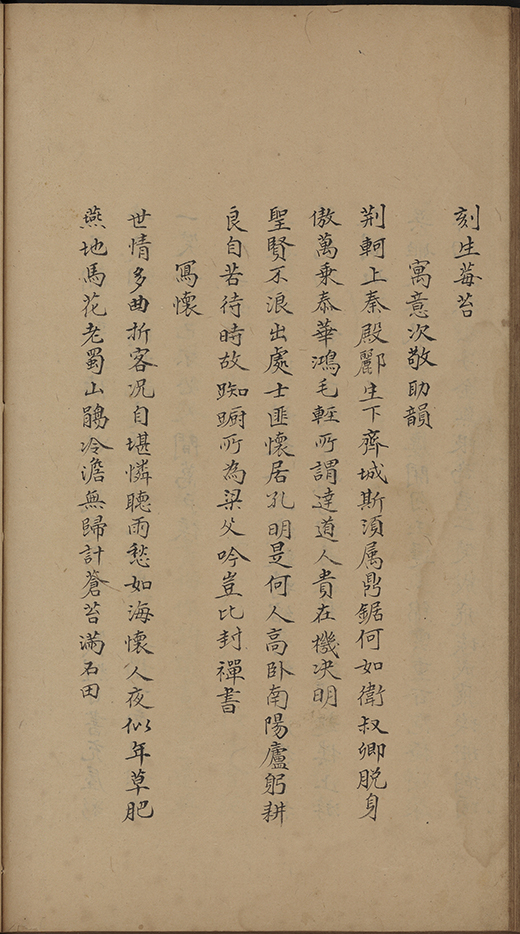 刻生莓苔
寓意次敬助韻
荆軻上秦殿酈生下齊城斯湏属鼎鋸何如衛叔卿脱身
傲萬乗泰華鴻毛輕所謂達道人貴在機决明
聖賢不浪出處士匪懷居孔明是何人高卧南陽廬躬耕
良自若待時故踟蹰所為梁父吟豈比封禪書
寫懷
世情多曲折客况自堪憐聽雨愁如海懷人夜似年草肥
燕地馬花老蜀山鵑冷澹無歸計蒼苔滿石田